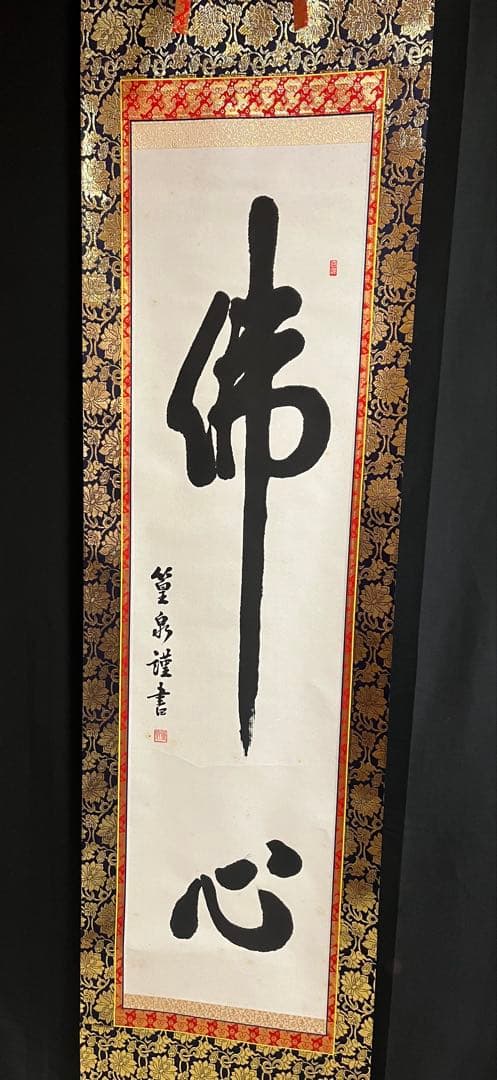 佛心
篁泉謹書